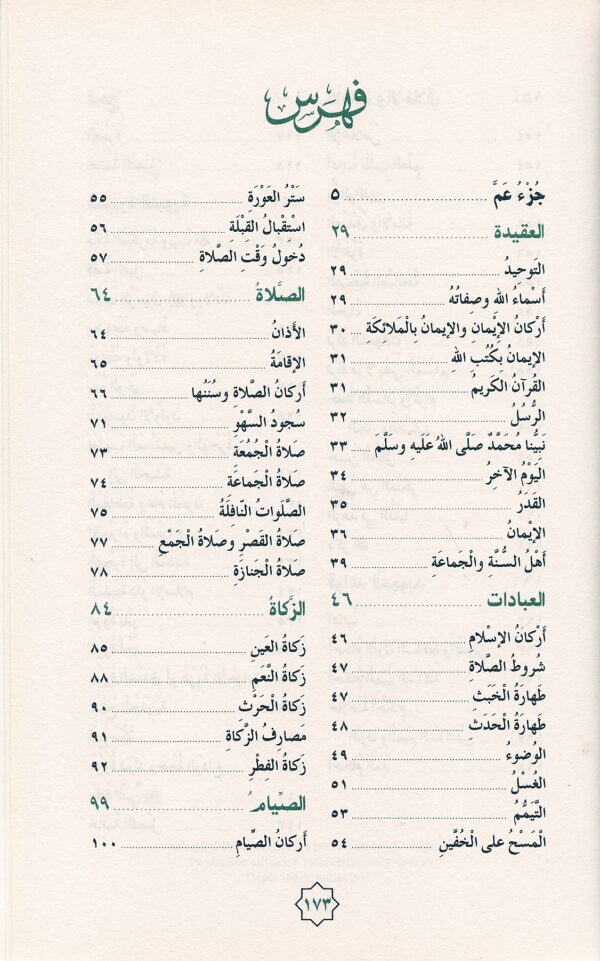 فهرس
جُزْءُ عَمَّ ٥
العقيدة ٢٩
التَوحيدُ ٢٩
أَسْماءُ اللهِ وصِفاتُهُ ٢٩
أَرْكانُ الإِيْمانِ والإِيمانُ بِالْمَلائكَةِ ٣٠
الإِيمانُ بِكُتُبِ اللهِ ٣١
القُرْآنُ الكَريمُ ٣١
الرُّسُلُ ٣٢
نَبِيُّنا مُحَمَّدٌ صَلَّى اللهُ عَلَيهِ وسَلَّمَ ٣٣
اليَوْمُ الآخِرُ ٣٤
القَدَرُ ٣٥
الإِيْمانُ ٣٦
أَهْلُ السُنَّةِ والْجَماعَةِ ٣٩
العبادات ٤٦
أَرْكانُ الإِسْلامِ ٤٦
شُروطُ الصَّلاةِ ٤٧
طَهارَةُ الْخَبَثِ ٤٧
طَهارَةُ الْحَدَثِ ٤٨
الوُضوءُ ٤٩
الغُسْلُ ٥١
التَّيَمُّمُ ٥٣
الْمَسْحُ على الْخُفَّينِ ٥٤
سَتْرُ العَوْرَة ٥٥
اسْتِقْبالُ القِبْلَةِ ٥٦
دُخولُ وَقْتِ الصَّلاةِ ٥٧
الصَّلاةُ ٦٤
الأَذانُ ٦٤
الإِقامَةُ ٦٥
أَركانُ الصَّلاةِ وسُنَنُها ٦٦
سُجودُ السَّهْوِ ٧١
صَلاةُ الْجُمُعَةِ ٧٣
صَلاةُ الْجَماعَةِ ٧٤
الصَّلَواتُ النّافِلَةُ ٧٥
صَلاةُ القَصْرِ وصَلاةُ الْجَمْعِ ٧٧
صَلاةُ الْجَنازَةِ ٧٨
الزَّكاةُ ٨٤
زَكاةُ العَينِ ٨٥
زَكاةُ النَّعَمِ ٨٨
زَكاةُ الْحَرْثِ ٩٠
مَصارِفُ الزَّكاةِ ٩١
زَكاةُ الفِطْرِ ٩٢
الصِّيامُ ٩٩
أَركانُ الصِّيامِ ١٠٠
١٧٣